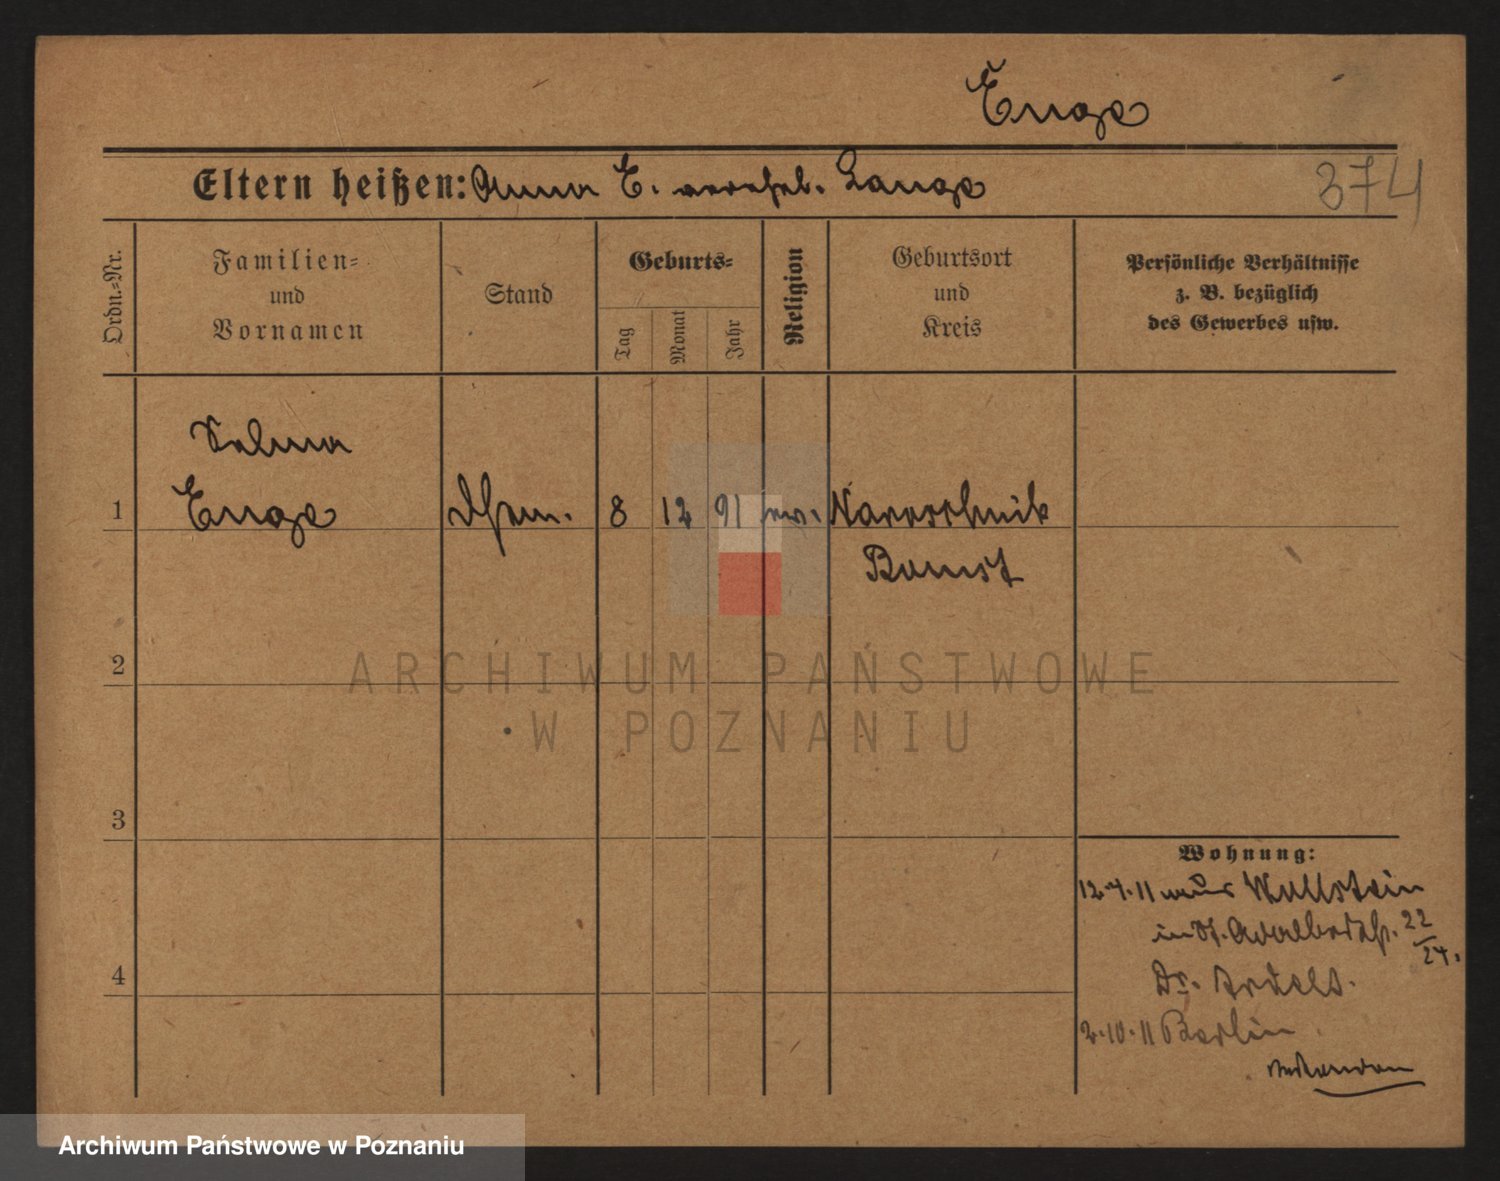 Enge
Eltern heißen: Anna E. verehel. Lange
374
Ordn.-Nr.
Familien-
und
Vornamen
Stand
Geburts-
Tag
Monat
Jahr
Religion
Geburtsort
und
Kreis
Persönliche Verhältnisse
z. B. bezüglich
des Gewerbes usw.
Selma
1 Enge 8 12 91 ev.
Bomst
2
ARCHIWUM PAŃSTWOWE
W POZNANIU
3
4
Wohnung:
12.4.11 aus Wollstein
in St. Adalbertstr. 22/24.
Dr.
2.10.11 Berlin
Archiwum Państwowe w Poznaniu